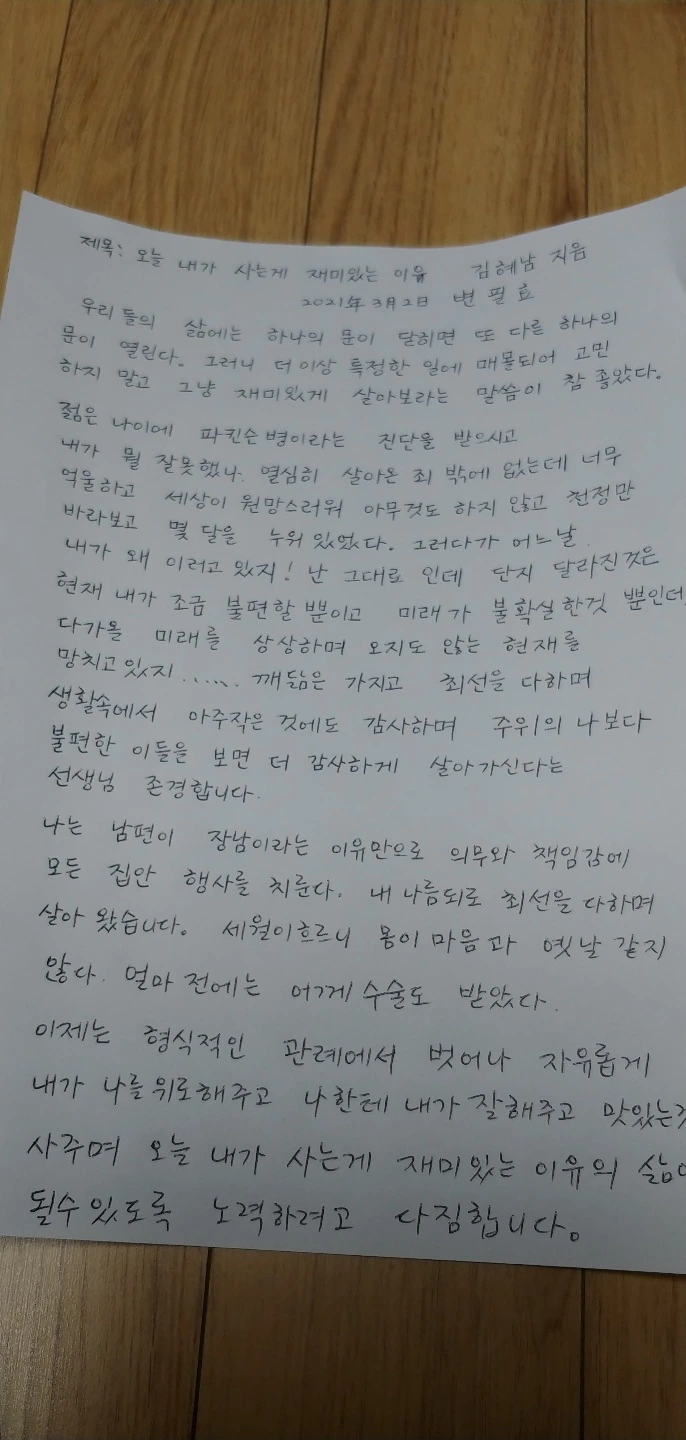 제목: 오늘 내가 사는게 재미있는 이유 김혜남 지음
2021年 3月 2日 변필효
우리들의 삶에는 하나의 문이 닫히면 또 다른 하나의
문이 열린다. 그러니 더이상 특정한 일에 매몰되어 고민
하지 말고 그냥 재미있게 살아보라는 말씀이 참 좋았다.
젊은 나이에 파킨슨병이라는 진단을 받으시고
내가 뭘 잘못했나. 열심히 살아온 죄 밖에 없는데 너무
억울하고 세상이 원망스러워 아무것도 하지 않고 천정만
바라보고 몇 달을 누워 있었다. 그러다가 어느날
내가 왜 이러고 있지! 난 그대로 인데 단지 달라진것은
현재 내가 조금 불편할 뿐이고 미래가 불확실한것 뿐인데
다가올 미래를 상상하며 오지도 않는 현재를
망치고 있지...... 깨닮은 가지고 최선을 다하며
생활속에서 아주작은 것에도 감사하며 주위의 나보다
불편한 이들을 보면 더 감사하게 살아가신다는
선생님 존경합니다.
나는 남편이 장남이라는 이유만으로 의무와 책임감에
모든 집안 행사를 치룬다. 내 나름되로 최선을 다하며
살아 왔습니다. 세월이흐르니 몸이 마음과 옛날 같지
않다. 얼마 전에는 어깨수술도 받았다.
이제는 형식적인 관례에서 벗어나 자유롭게
내가 나를 위로해주고 나한테 내가 잘해주고 맛있는것
사주며 오늘 내가 사는게 재미있는 이유의
될수있도록 노력하려고 다짐합니다.